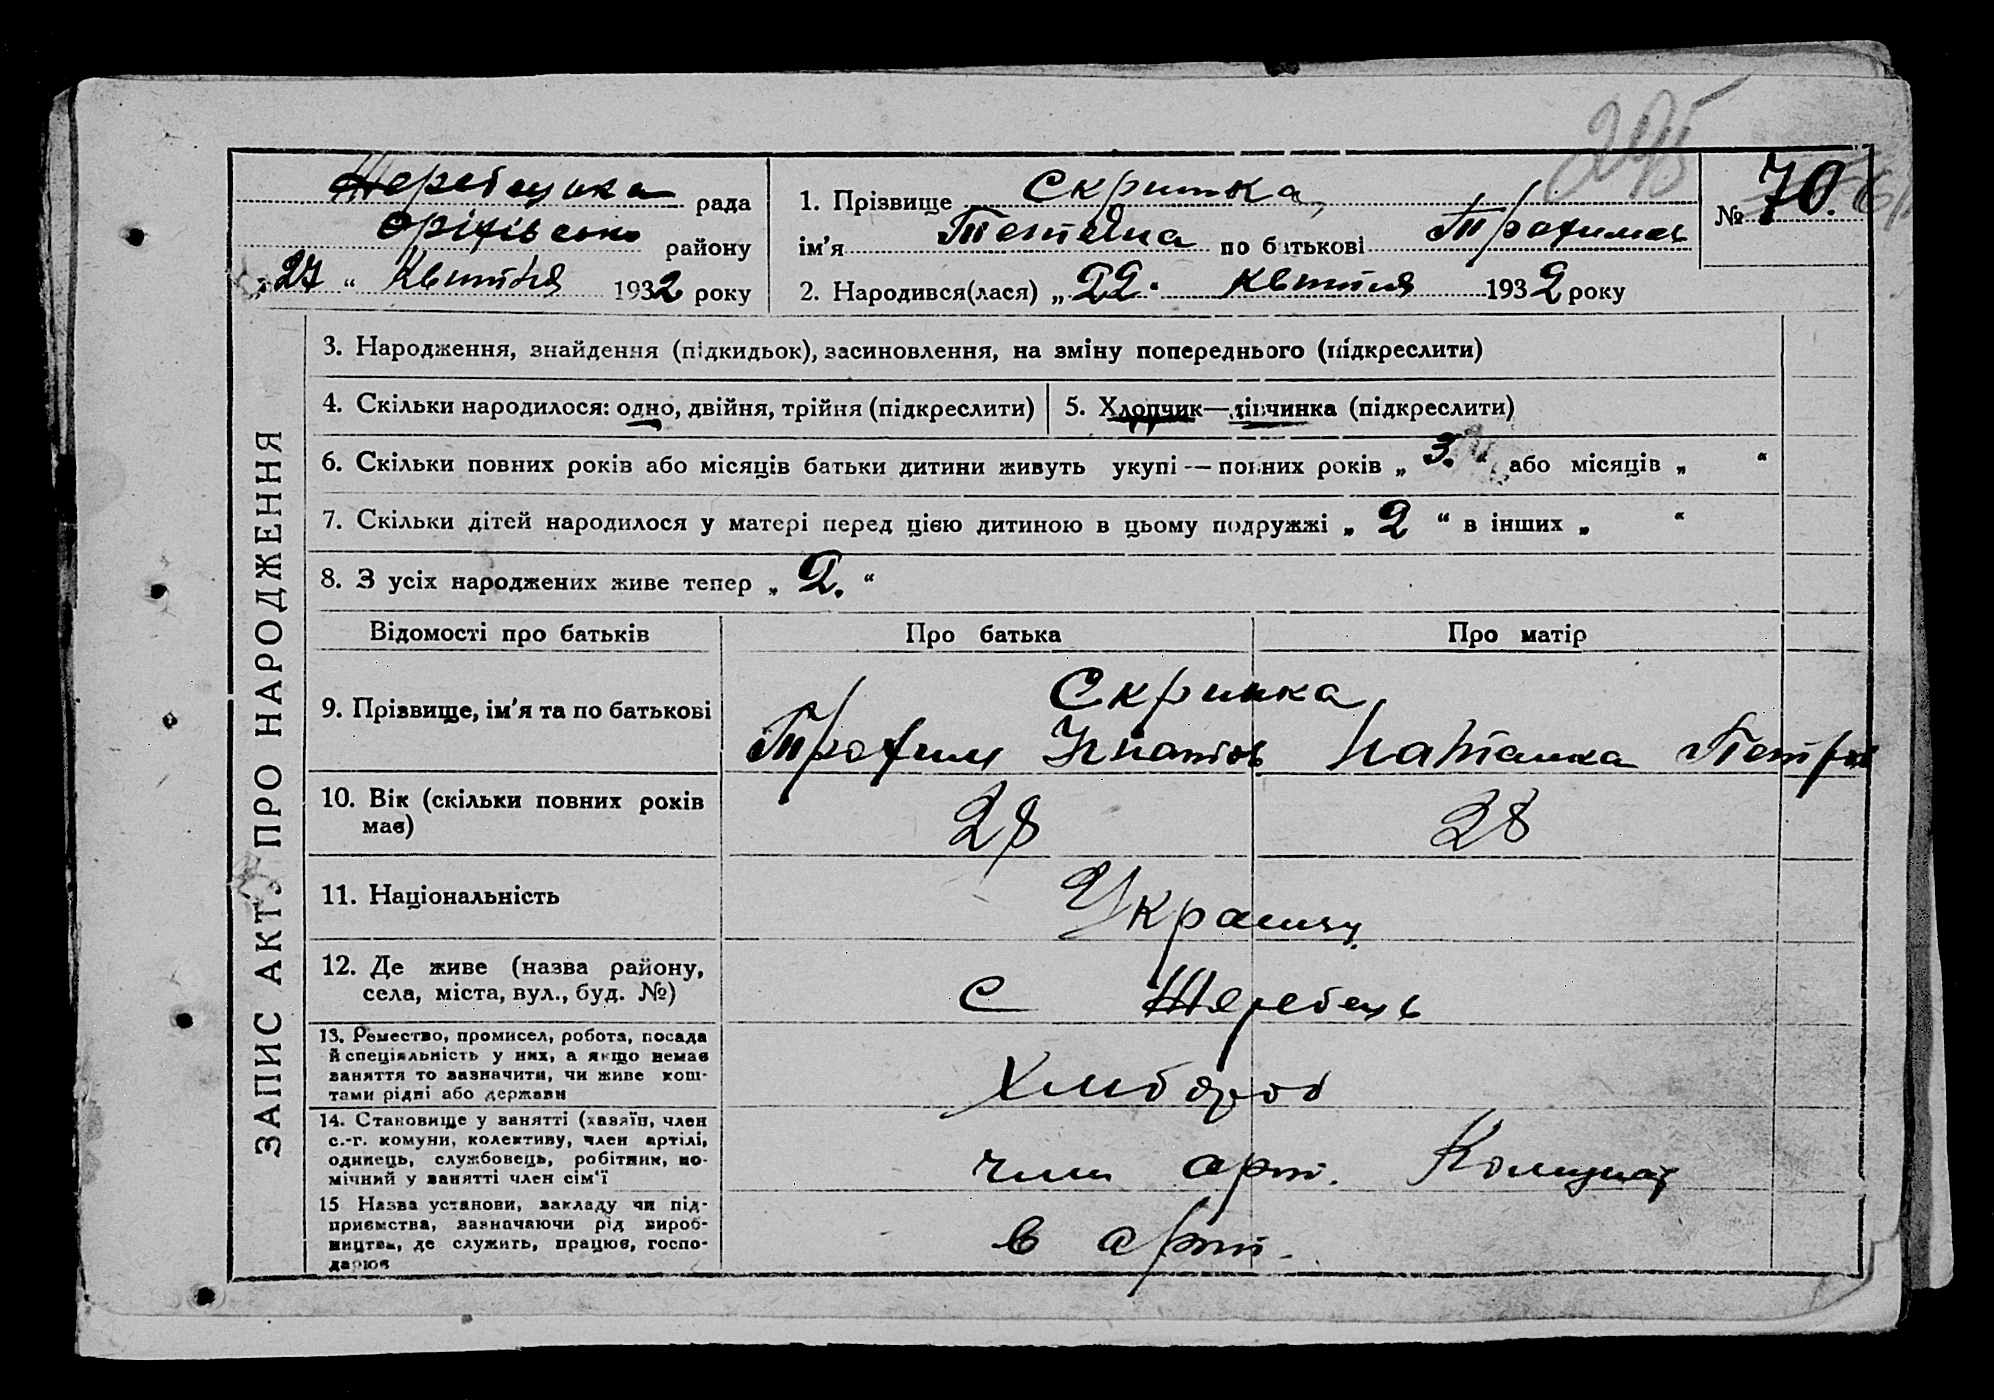 295
Жеребецька рада
Оріхівськ району
„27“ Квітня 1932 року
1. Прізвище Скрипка,
ім'я Тетяна по батькові Трохимов
№ 70.
2. Народився(лася) „22“ квітня 1932 року
ЗАПИС АКТУ ПРО НАРОДЖЕННЯ
3. Народження, знайдення (підкидьок), засиновлення, на зміну попереднього (підкреслити)
4. Скільки народилося: одно, двійня, трійня (підкреслити)
5. Хлопчик—дівчинка (підкреслити)
6. Скільки повних років або місяців батьки дитини живуть укупі — повних років „3.“ або місяців „ “
7. Скільки дітей народилося у матері перед цією дитиною в цьому подружжі „2“ в інших „ “
8. З усіх народжених живе тепер „2.“
Відомості про батьків Про батька Про матір
9. Прізвище, ім'я та по батькові
Скрипка
Трохим Игнатов Наталка Петров
10. Вік (скільки повних років
має)
28 28
11. Національність
Украинц
12. Де живе (назва району,
села, міста, вул., буд. №)
с Жеребець
13. Ремество, промисел, робота, посада
й спеціяльність у них, а якщо немає
заняття то зазначити, чи живе кош-
тами рідні або держави
Хлибороб
14. Становище у занятті (хазяїн, член
с.-г. комуни, колективу, член артілі,
одинець, службовець, робітник, по-
мічний у занятті член сім'ї
член арт. Комунар
15 Назва установи, закладу чи під-
приємства, зазначаючи рід вироб-
ництва, де служить, працює, госпо-
дарює
в арт.